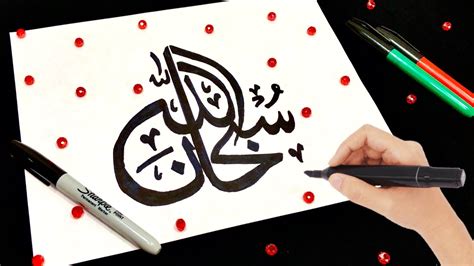 سُبحان الله
Sharpie